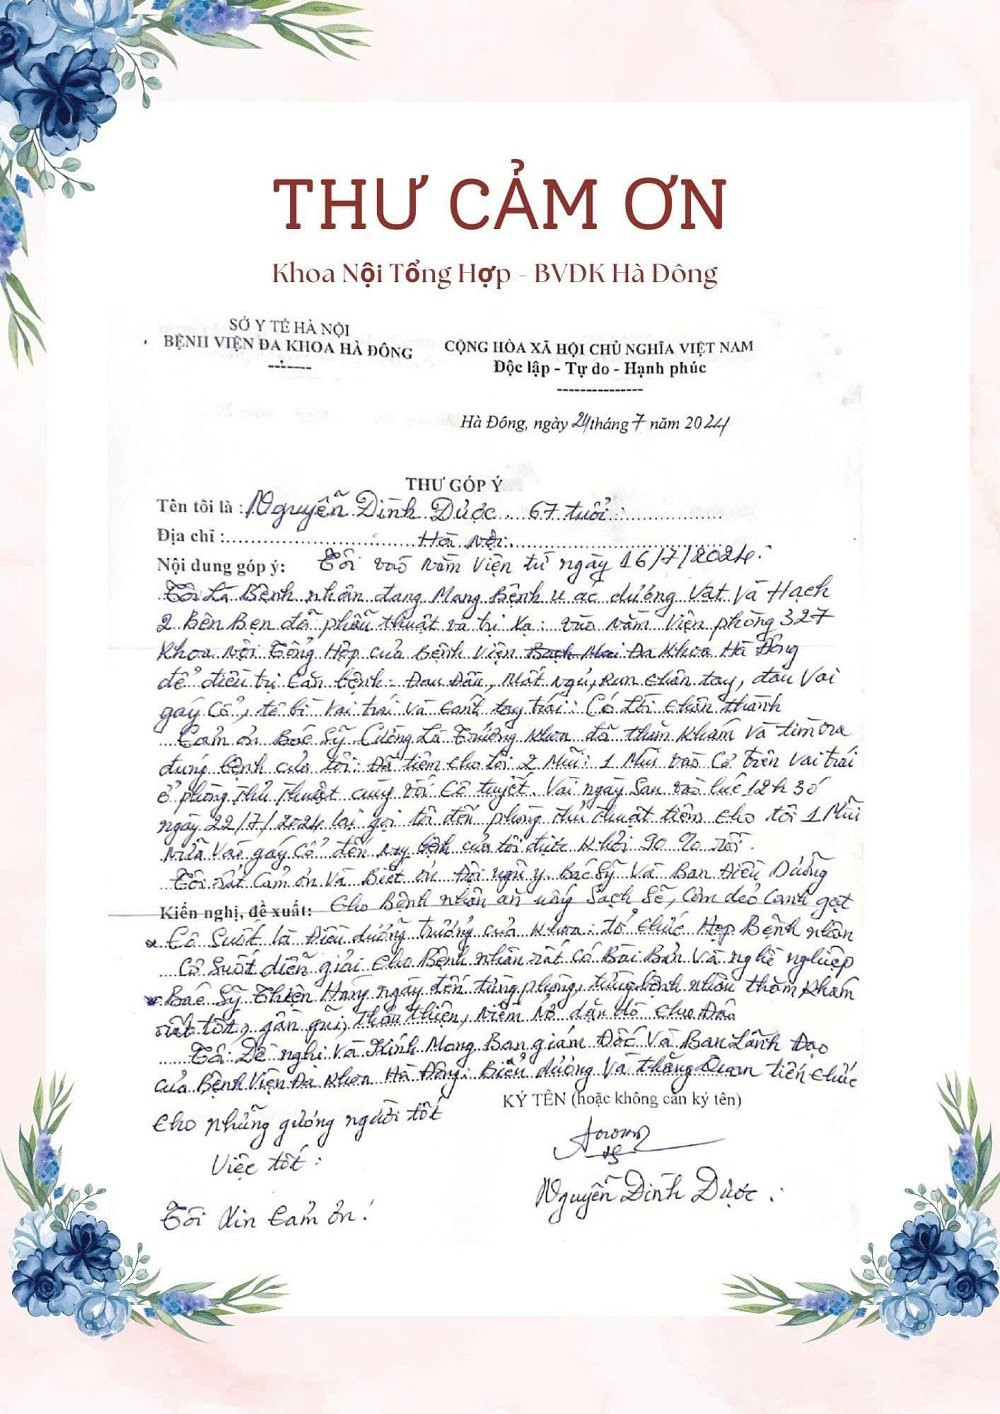 THƯ CẢM ƠN
Khoa Nội Tổng Hợp - BVDK Hà Đông
SỞ Y TẾ HÀ NỘI
BỆNH VIỆN ĐA KHOA HÀ ĐÔNG
CỘNG HÒA XÃ HỘI CHỦ NGHĨA VIỆT NAM
Độc lập - Tự do - Hạnh phúc
Hà Đông, ngày 24 tháng 7 năm 2024
THƯ GÓP Ý
Tên tôi là : Nguyễn Đình Dược. 67 tuổi :
Địa chỉ : Hà Nội.
Nội dung góp ý: Tôi vào Nằm Viện từ ngày 16/7/2024.
Tôi Là Bệnh nhân đang Mang Bệnh u ác dương Vật Và Hạch
2 Bên Bẹn đã phẫu thuật và trị Xạ: vào Nằm Viện phòng 327
Khoa Nội Tổng Hợp của Bệnh Viện Bạch Mai Đa Khoa Hà Đông
để điều trị Căn bệnh: Đau Đầu, Mất Ngủ, Run chân tay, đau Vai
gáy Cổ, tê bì Vai trái Và Cánh tay trái: Có Lời Chân thành
Cảm ơn Bác Sỹ Cường Là Trưởng Khoa đã thăm Khám Và tìm ra
đúng bệnh của tôi: Đã tiêm cho tôi 2 Mũi: 1 Mũi vào Cổ trên Vai trái
ở phòng thủ thuật cùng với Cô tuyết. Vài ngày Sau vào lúc 12h 30
ngày 22/7/2024 lại gọi tôi đến phòng thủ thuật tiêm cho tôi 1 Mũi
nữa Vào gáy Cổ đến nay bệnh của tôi được Khỏi 90 % rồi.
Tôi rất Cảm ơn Và Biết ơn Đội ngũ y Bác Sỹ Và Ban Điều Dưỡng
Kiến nghị, đề xuất: Cho Bệnh nhân ăn uống Sạch Sẽ, Cơm dẻo Canh ngọt
Cô Suốt là Điều dưỡng trưởng của Khoa: tổ chức Họp Bệnh nhân
Cô Suốt diễn giải Cho Bệnh nhân rất có Bài Bản Và nghề nghiệp
Bác Sỹ Thiện Hàng ngày đến từng phòng, từng bệnh nhân thăm Khám
rất tốt, gần gũi, Thân thiện, Niềm Nở dặn dò chu Đáo
Tôi: Đề nghị Và Kính Mong Ban giám Đốc Và Ban Lãnh Đạo
của Bệnh Viện Đa Khoa Hà Đông: Biểu dương Và thăng Quan tiến chức
Cho những gương người tốt
Việc tốt :
Tôi Xin Cảm ơn!
KÝ TÊN (hoặc không cần ký tên)
Nguyễn Đình Dược.